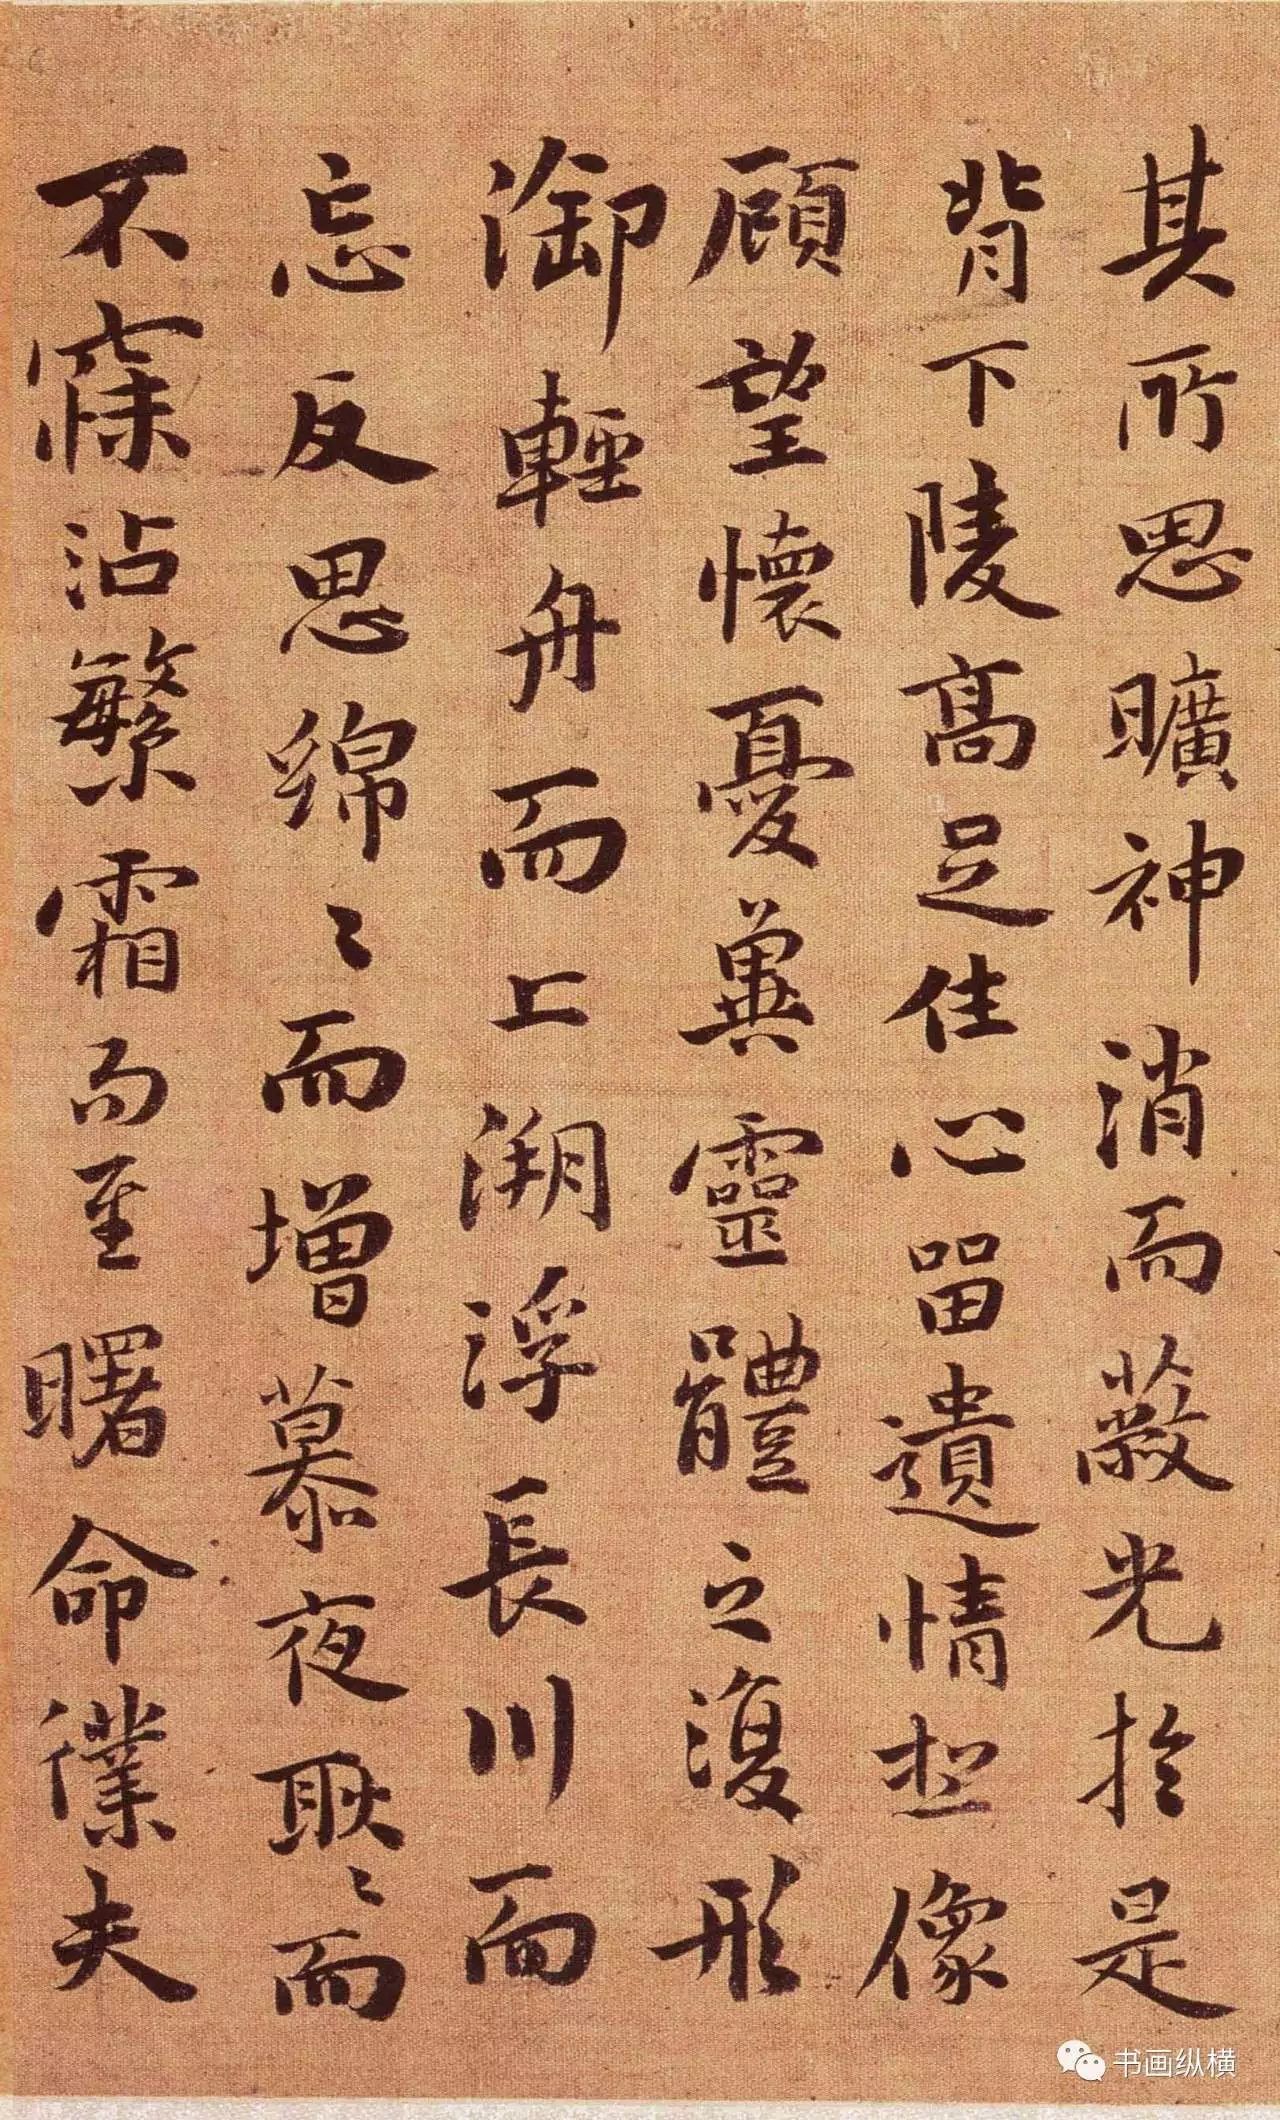 其所思曠神消而蔽光於是
背下陵高足往心留遺情想像
顧望懷憂冀靈體之復形
御輕舟而上溯浮長川而
忘反思綿〻而增慕夜耿〻而
不寐沾繁霜而至曙命僕夫
书画纵横